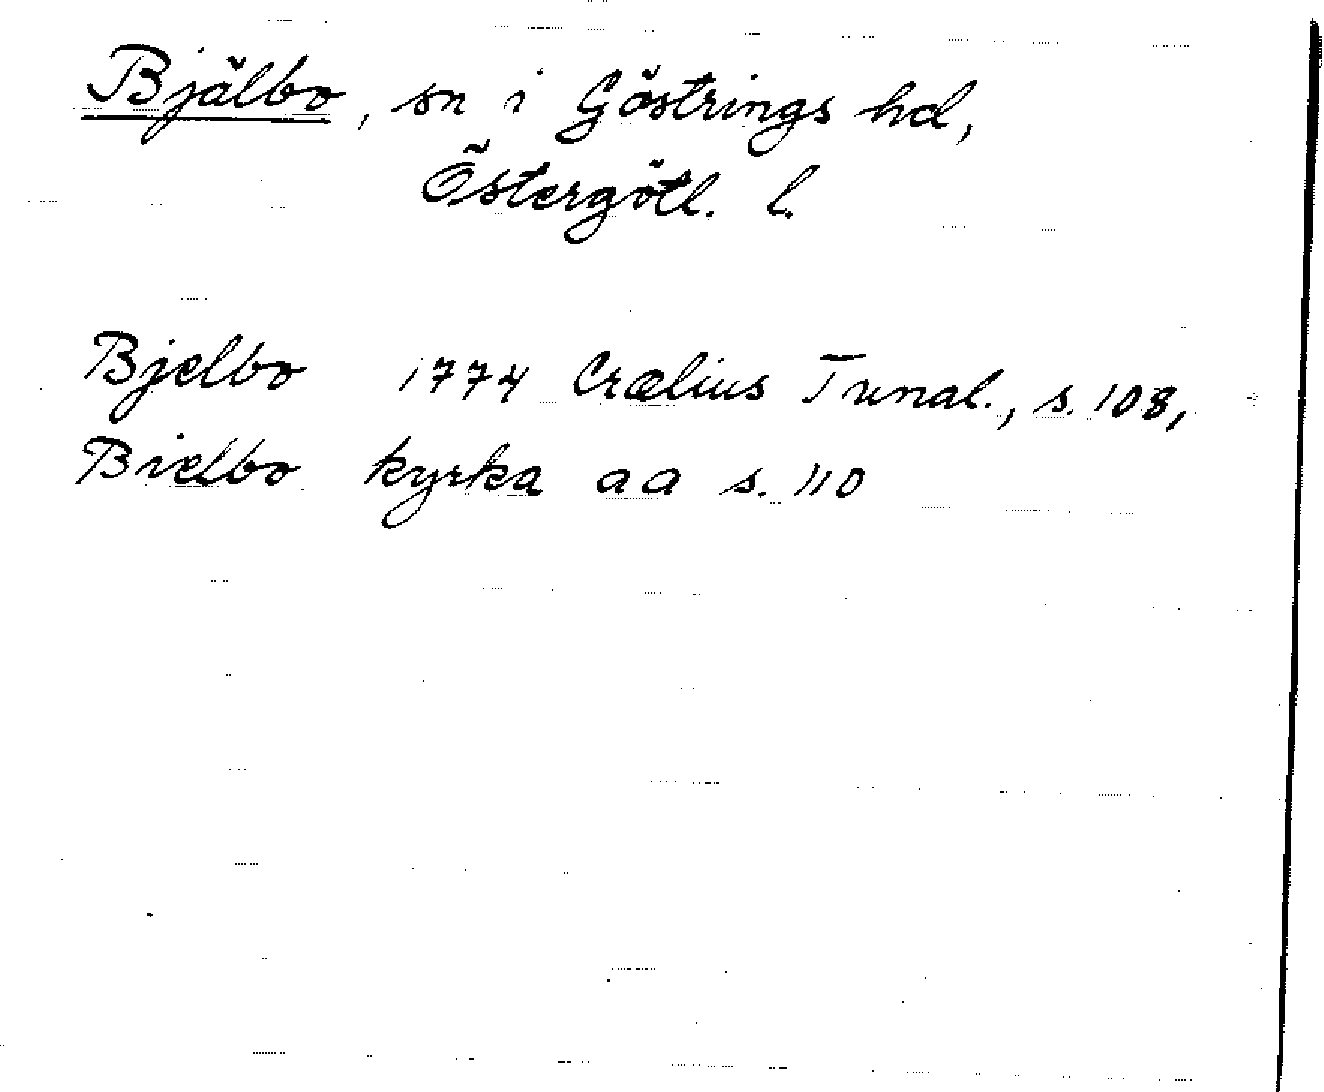 Bjälbo, sn i Göstrings hd,
Östergötl. l.
Bjelbo 1774 Crælius Tunal., s. 108,
Bielbo kyrka aa s. 110